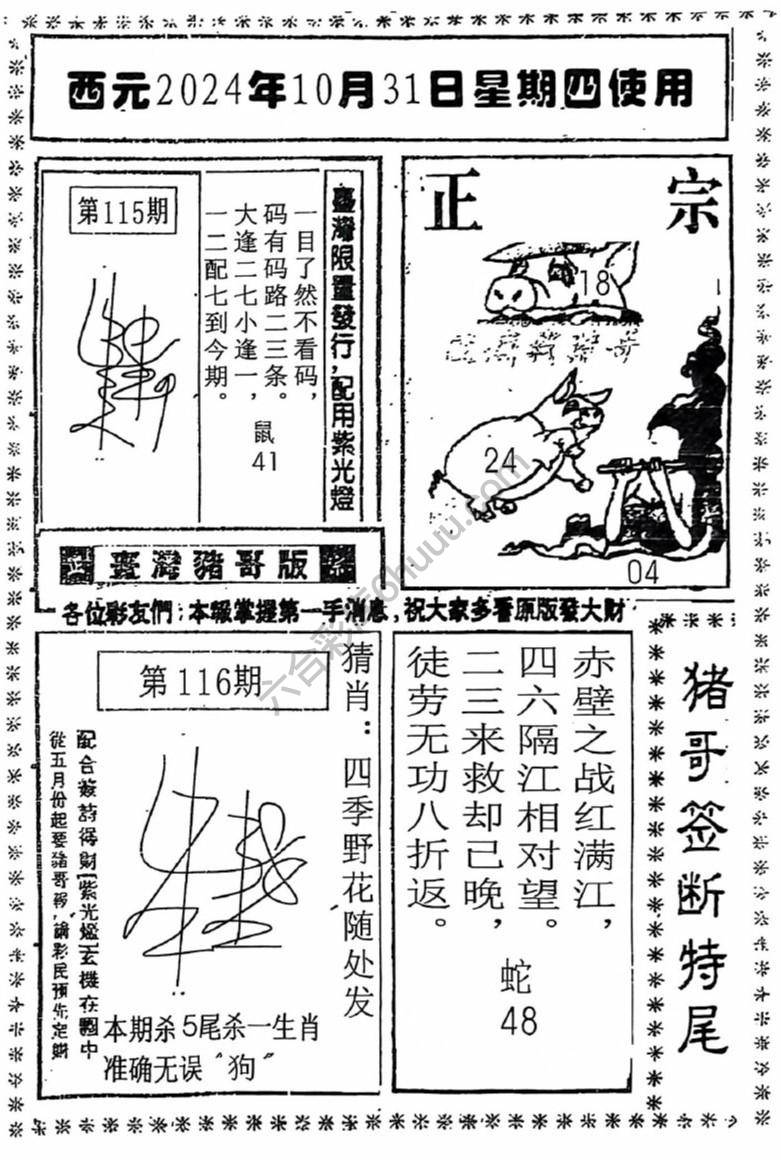 西元2024年10月31日星期四使用
第115期
臺灣限量發行，配用紫光燈
一目了然不看码，
码有码路二三条。
大逢二七小逢一，
一二配七到今期。
鼠
41
正宗
18
24
04
臺灣豬哥版
各位彩友們：本報掌握第一手消息，祝大家多看原版發大財
第116期
猜肖：四季野花随处发
配合簽詩得財紫光燈玄機在圖中
從五月份起要豬哥報，請彩民預先定購
本期杀5尾杀一生肖
准确无误“狗”
赤壁之战红满江，
四六隔江相对望。
二三来救却已晚，
徒劳无功八折返。
蛇
48
猪哥签断特尾
六合彩库6huuu.com